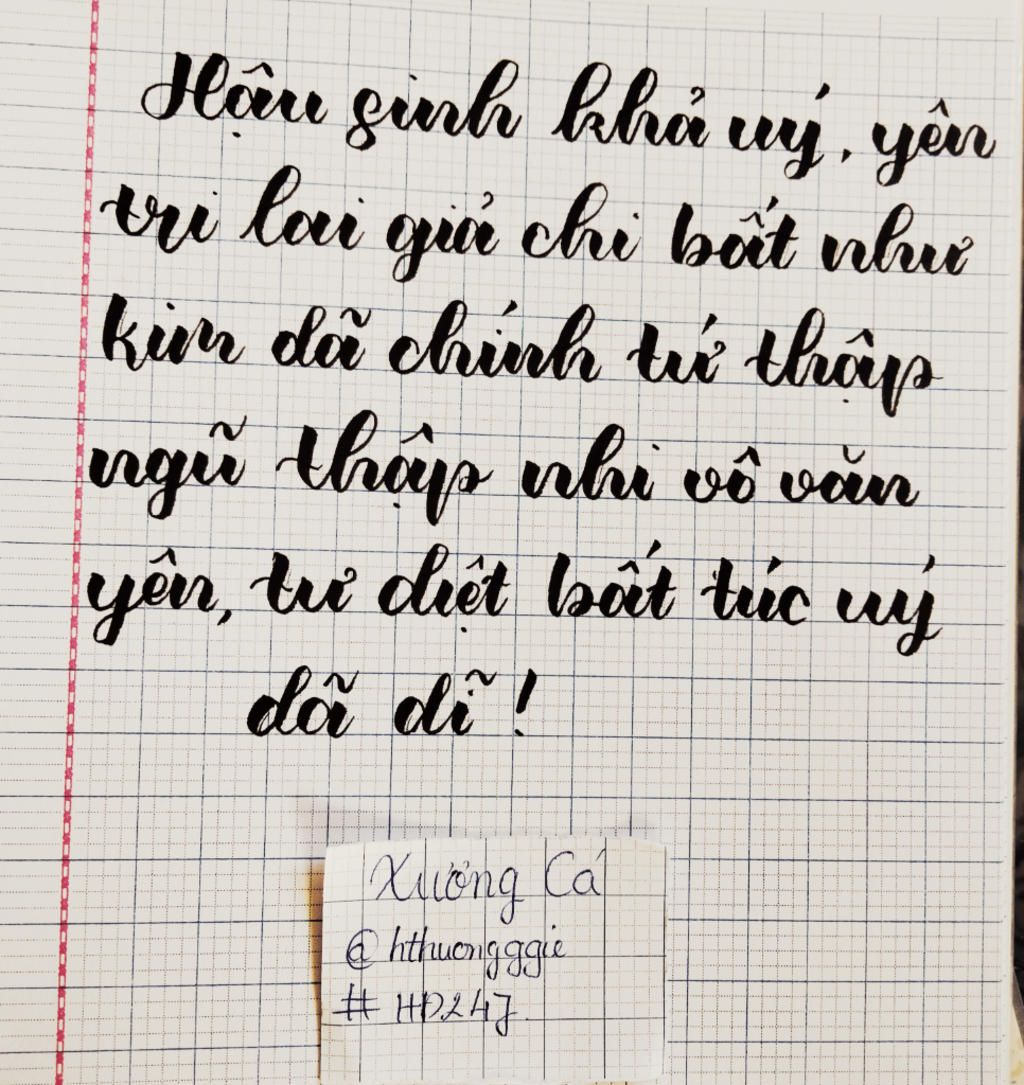 Hậu sinh khả uý, yên
tri lai giả chi bất như
kim dã chính tứ thập
ngũ thập nhi vô văn
yên, tư diệt bất túc uý
dã dĩ!
Xưởng Cá
@hthuongggie
#HD247